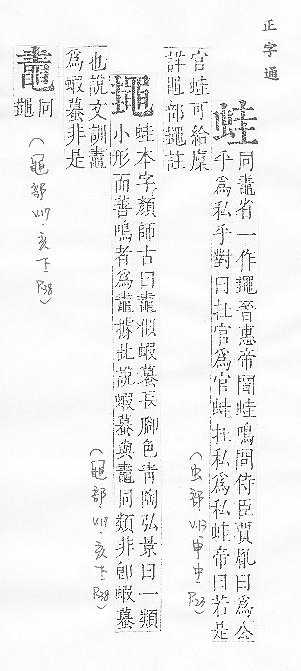 正字通
蛙
同鼃省一作䵷晉惠帝聞蛙鳴問侍臣賈胤曰爲公
乎爲私乎對曰在官爲官蛙在私爲私蛙帝曰若是
官蛙可給廩
詳黽部䵷註
(虫部 V.13 申中 P.23)
䵷
蛙本字顏師古曰鼃似蝦蟇長脚色青陶弘景曰一類
小形而善鳴者爲鼃據此說蝦蟇與鼃同類非卽蝦蟇
也說文訓鼃
爲蝦蟇非是
(黽部 V.17.亥下 P.38)
鼃
同
䵷
(黽部 V.17.亥下 P.38)